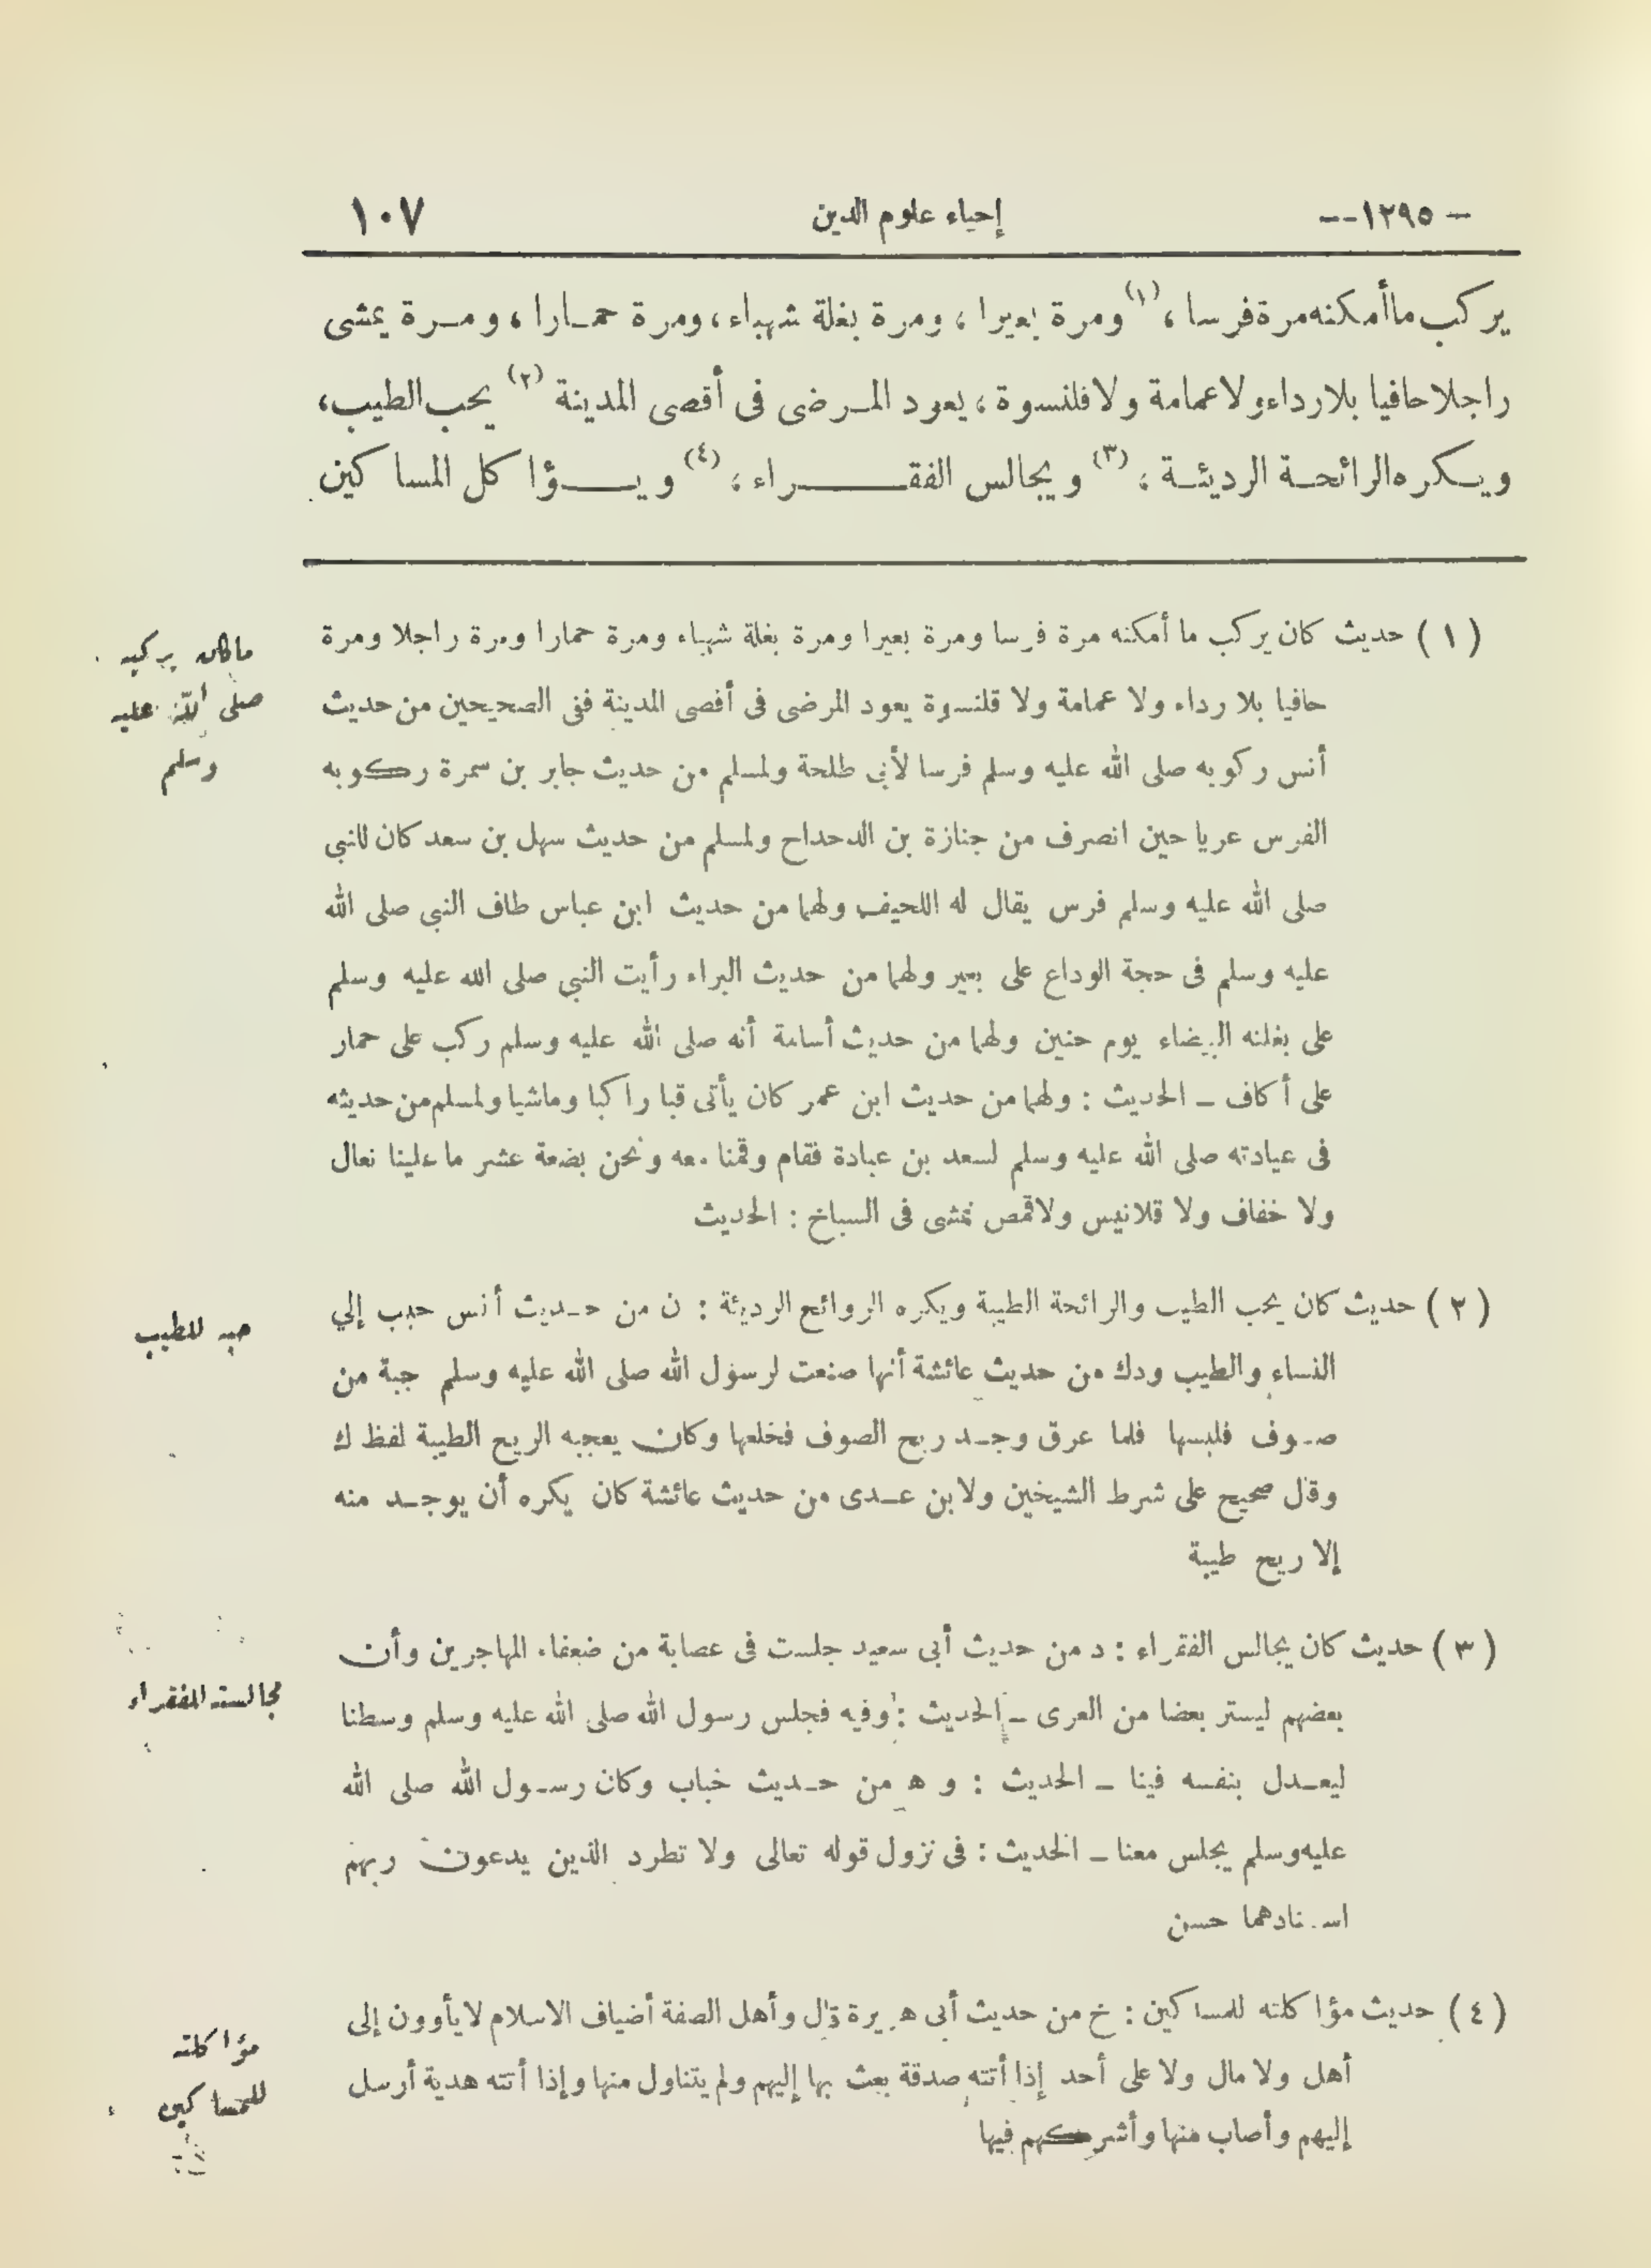 - ١٢٩٥ -- إحياء علوم الدين ١٠٧
يركب ما أمكنه مرة فرسا ، (١) ومرة بعيرا ، ومرة بغلة شهباء ، ومرة حمارا ، ومرة يمشى
راجلا حافيا بلا رداء ولا عمامة ولا قلنسوة ، يعود المرضى فى أقصى المدينة (٢) يحب الطيب ،
ويكره الرائحة الرديئة ، (٣) ويجالس الفقراء ، (٤) ويؤاكل المساكين
(١) حديث كان يركب ما أمكنه مرة فرسا ومرة بعيرا ومرة بغلة شهباء ومرة حمارا ومرة راجلا ومرة
حافيا بلا رداء ولا عمامة ولا قلنسوة يعود المرضى فى أقصى المدينة ففى الصحيحين من حديث
أنس ركوبه صلى الله عليه وسلم فرسا لأبى طلحة ولمسلم من حديث جابر بن سمرة ركوبه
الفرس عريا حين انصرف من جنازة بن الدحداح ولمسلم من حديث سهل بن سعد كان للنبى
صلى الله عليه وسلم فرس يقال له اللحيف ولهما من حديث ابن عباس طاف النبى صلى الله
عليه وسلم فى حجة الوداع على بعير ولهما من حديث البراء رأيت النبى صلى الله عليه وسلم
على بغلته البيضاء يوم حنين ولهما من حديث أسامة أنه صلى الله عليه وسلم ركب على حمار
على أكاف - الحديث : ولهما من حديث ابن عمر كان يأتى قبا راكبا وماشيا ولمسلم من حديثه
فى عيادته صلى الله عليه وسلم لسعد بن عبادة فقام وقمنا معه ونحن بضعة عشر ما علينا نعال
ولا خفاف ولا قلانيس ولا قمص نمشى فى السباخ : الحديث
ما كان يركبه
صلى الله عليه
وسلم
(٢) حديث كان يحب الطيب والرائحة الطيبة ويكره الروائح الرديئة : ن من حديث أنس حبب إلي
النساء والطيب ودك من حديث عائشة أنها صنعت لرسول الله صلى الله عليه وسلم جبة من
صوف فلبسها فلما عرق وجد ريح الصوف فخلعها وكان يعجبه الريح الطيبة لفظ ك
وقال صحيح على شرط الشيخين ولابن عدى من حديث عائشة كان يكره أن يوجد منه
إلا ريح طيبة
حبه للطيب
(٣) حديث كان يجالس الفقراء : د من حديث أبى سعيد جلست فى عصابة من ضعفاء المهاجرين وأن
بعضهم ليستر بعضا من العرى - الحديث : وفيه فجلس رسول الله صلى الله عليه وسلم وسطنا
ليعدل بنفسه فينا - الحديث : و ه من حديث خباب وكان رسول الله صلى الله
عليه وسلم يجلس معنا - الحديث : فى نزول قوله تعالى ولا تطرد الذين يدعون ربهم
اسنادهما حسن
مجالسته للفقراء
(٤) حديث مؤاكلته للمساكين : خ من حديث أبى هريرة قال وأهل الصفة أضياف الاسلام لا يأوون إلى
أهل ولا مال ولا على أحد إذا أتته صدقة بعث بها إليهم ولم يتناول منها وإذا أتته هدية أرسل
إليهم وأصاب منها وأشركهم فيها
مؤاكلته
للمساكين